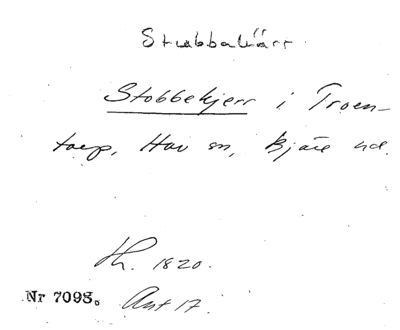 Stubbakärr
Stobbekjerr i Troen-
torp, Hov sn, Bjäre hd.
Th. 1820.
Nr 7098. Ant 17.